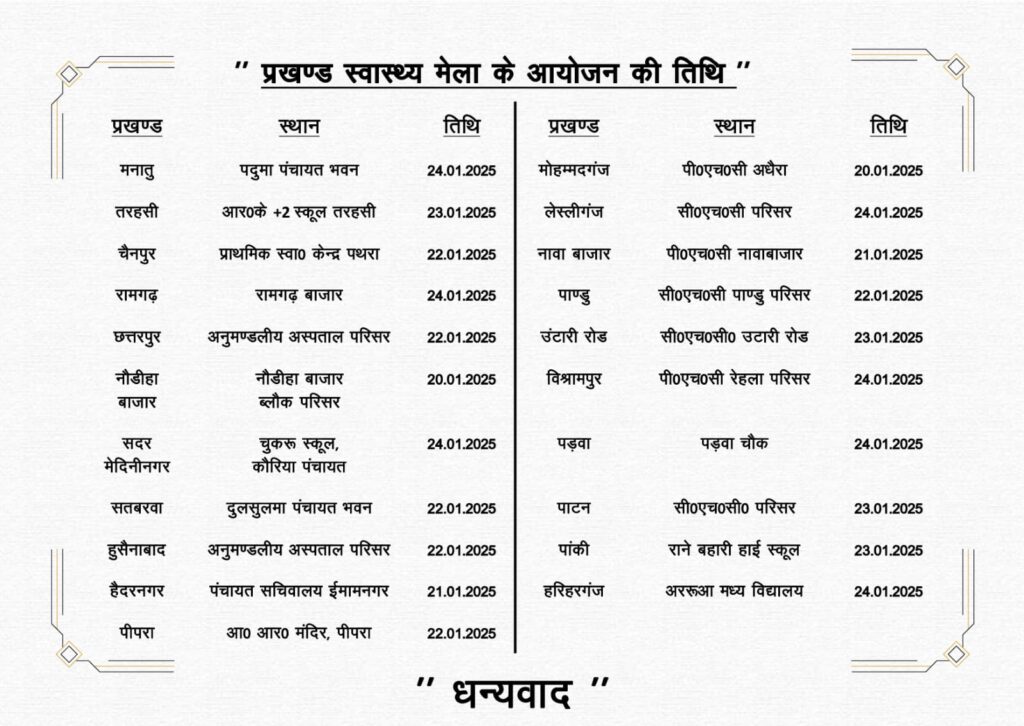 " प्रखण्ड स्वास्थ्य मेला के आयोजन की तिथि "
प्रखण्ड स्थान तिथि
मनातु पदुमा पंचायत भवन 24.01.2025
तरहसी आर0के +2 स्कूल तरहसी 23.01.2025
चैनपुर प्राथमिक स्वा0 केन्द्र पथरा 22.01.2025
रामगढ़ रामगढ़ बाजार 24.01.2025
छत्तरपुर अनुमण्डलीय अस्पताल परिसर 22.01.2025
नौडीहा नौडीहा बाजार 20.01.2025
बाजार ब्लौक परिसर
सदर चुकरू स्कूल, 24.01.2025
मेदिनीनगर कौरिया पंचायत
सतबरवा दुलसुलमा पंचायत भवन 22.01.2025
हुसैनाबाद अनुमण्डलीय अस्पताल परिसर 22.01.2025
हैदरनगर पंचायत सचिवालय ईमामनगर 21.01.2025
पीपरा आ0 आर0 मंदिर, पीपरा 22.01.2025
प्रखण्ड स्थान तिथि
मोहम्मदगंज पी0एच0सी अधैरा 20.01.2025
लेस्लीगंज सी0एच0सी परिसर 24.01.2025
नावा बाजार पी0एच0सी नावाबाजार 21.01.2025
पाण्डु सी0एच0सी पाण्डु परिसर 22.01.2025
उंटारी रोड सी0एच0सी0 उटारी रोड 23.01.2025
विश्रामपुर पी0एच0सी रेहला परिसर 24.01.2025
पड़वा पड़वा चौक 24.01.2025
पाटन सी0एच0सी0 परिसर 23.01.2025
पांकी राने बहारी हाई स्कूल 23.01.2025
हरिहरगंज अररूआ मध्य विद्यालय 24.01.2025
" धन्यवाद "